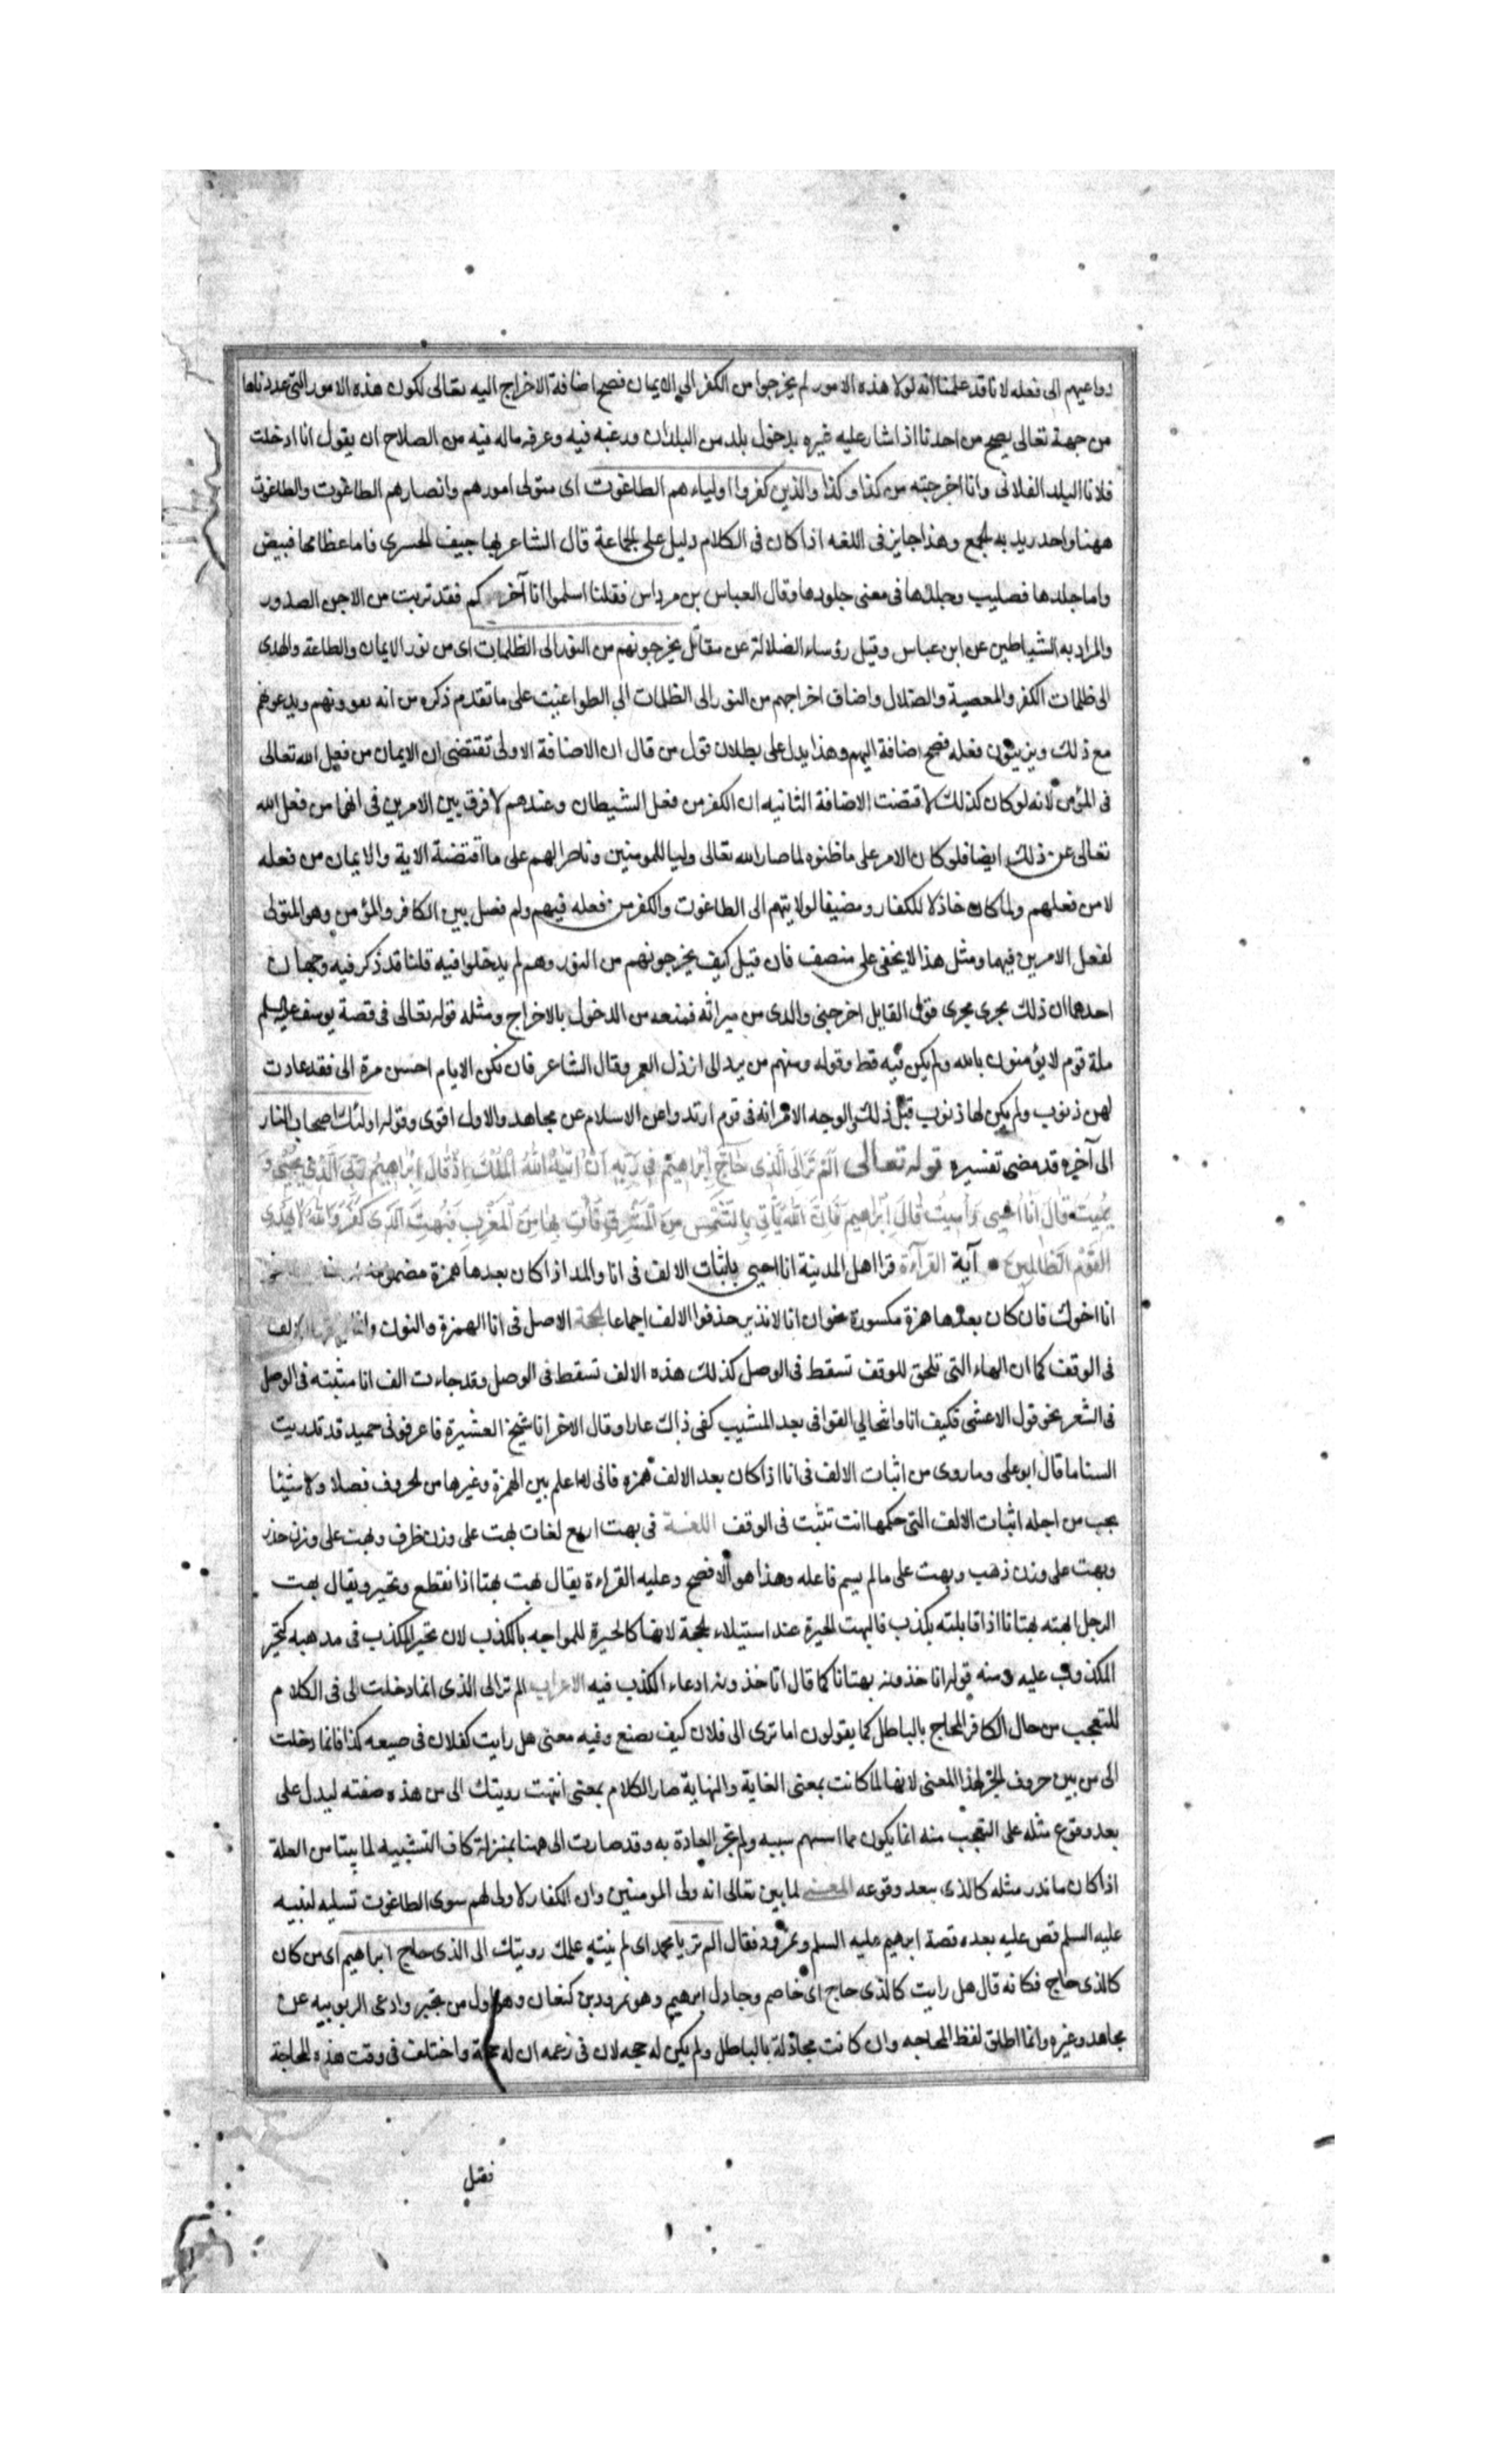 دواعيهم الى فعله لانا قد علمنا انه لولا هذه الامور لم يخرجوا من الكفر الى الايمان فصح اضافة الاخراج اليه تعالى لكون هذه الامور التى عددناها
من جهة تعالى يصح من احدنا اذا اشار عليه غيره بدخول بلد من البلدان ورغبه فيه وعرفه ماله فيه من الصلاح ان يقول انا ادخلت
فلانا البلد الفلانى وانا اخرجته من كذا وكذا والذين كفروا اولياءهم الطاغوت اى متولى امورهم وانصارهم الطاغوت والطاغوت
ههنا واحد يريد به الجمع وهذا جايز فى اللغه اذا كان فى الكلام دليل على الجماعة قال الشاعر بها جيف الحسرى فاما عظامها فبيض
واما جلدها فصليب وجلدها فى معنى جلودها وقال العباس بن مرداس فقلنا اسلموا انا اخوكم فقد تربت من الاجن الصدور
والمراد به الشياطين عن ابن عباس وقيل رؤساء الضلالة عن مقاتل يخرجونهم من النور الى الظلمات اى من نور الايمان والطاعة والهدى
الى ظلمات الكفر والمعصية والضلال واضاف اخراجهم من النور الى الظلمات الى الطواغيت على ما تقدم ذكره من انه يغوونهم ويدعونهم
مع ذلك ويزينون فعله فصح اضافة اليهم وهذا يدل على بطلان قول من قال ان الاضافة الاولى تقتضى ان الايمان من فعل الله تعالى
فى المؤمن لانه لو كان كذلك لاقتضت الاضافة الثانيه ان الكفر من فعل الشيطان وعندهم لا فرق بين الامرين فى انهما من فعل الله
تعالى عن ذلك ايضا فلو كان الامر على ما ظنوه لما صار الله تعالى وليا للمومنين وناصرا لهم على ما اقتضته الاية والايمان من فعله
لا من فعلهم ولما كان خاذلا للكفار ومضيفا لولايتهم الى الطاغوت والكفر من فعله فيهم ولم فصل بين الكافر والمؤمن وهو المتولى
لفعل الامرين فيهما ومثل هذا لا يخفى على منصف فان قيل كيف يخرجونهم من النور وهم لم يدخلوا فيه قلنا قد ذكر فيه وجهان
احدهما ان ذلك يجرى مجرى قول القايل اخرجنى والدى من ميراثه فمنعه من الدخول بالاخراج ومثله قوله تعالى فى قصة يوسف عليه السلم
ملة قوم لا يؤمنون بالله ولم يكن فيه قط وقوله ومنهم من يرد الى ارذل العمر وقال الشاعر فان تكن الايام احسن مرة الى فقد عادت
لهن ذنوب ولم يكن لها ذنوب قبل ذلك والوجه الاخر انه فى قوم ارتدوا عن الاسلام عن مجاهد والاول اقوى وقوله اولئك اصحاب النار
الى آخره قد مضى تفسيره قوله تعالى الم تر الى الذى حاج ابراهيم فى ربه ان اتيه الله الملك اذ قال ابراهيم ربى الذى يحيى و
يميت قال انا احيى واميت قال ابراهيم فان الله ياتى بالشمس من المشرق فات بها من المغرب فبهت الذى كفر والله لا يهدى
القوم الظالمين آية القرآءة قرا اهل المدينة انا احيى باثبات الالف فى انا والمد اذا كان بعدها همزة مضمومة
انا اخوك فان كان بعدها همزة مكسورة نحو ان انا الا نذير حذفوا الالف اجماعا الحجة الاصل فى انا الهمزة والنون وانما الالف
فى الوقف كما ان الهاء التى تلحق للوقف تسقط فى الوصل كذلك هذه الالف تسقط فى الوصل وقد جاءت الف انا مثبته فى الوصل
فى الشعر نحو قول الاعشى فكيف انا وانتحالى القوافى بعد المشيب كفى ذاك عارا وقال الاخر انا شيخ العشيرة فاعرفونى حميد قد تذريت
السناما قال ابو على وما روى من اثبات الالف فى انا اذا كان بعد الالف همزه فانى لا اعلم بين الهمزة وغيرها من الحروف فصلا ولا شيئا
يجب من اجله اثبات الالف التى حكمها انت تثبت فى الوقف اللغـة فى بهت اربع لغات بهت على وزن ظرف وبهت على وزن حذر
وبهت على وزن ذهب وبهت على ما لم يسم فاعله وهذا هو الافصح وعليه القراءة يقال بهت بهتا اذا نقطع وتحير ويقال بهت
الرجل ابهته بهتانا اذا قابلته بكذب فالبهت الحيرة عند استيلاء الحجة لانها كالحيرة للمواجه بالكذب لان تحير المكذب فى مذهبه كتحير
المكذوب عليه ومنه قوله اتاخذونه بهتانا كما قال اتاخذونه ادعاء الكذب فيه الاعراب الم تر الى الذى انما دخلت الى فى الكلام
للتعجب من حال الكافر المحاج بالباطل كما يقولون اما ترى الى فلان كيف يصنع وفيه معنى هل رايت كفلان فى صيعه كذا فانما دخلت
الى من بين حروف الجر لهذا المعنى لانها لما كانت بمعنى الغاية والنهاية صار الكلام بمعنى انتهت رويتك الى من هذه صفته ليدل على
بعد وقوع مثله على التعجب منه انما يكون مما استبهم سببه ولم تجر العادة به وقد صارت الى ههنا بمنزلة كاف التشبيه لما بينا من العلة
اذا كان ما ندر مثله كالذى يبعد وقوعه المعنـى لما بين تعالى انه ولى المومنين وان الكفار لا ولى لهم سوى الطاغوت تسليه لنبيه
عليه السلم قص عليه بعده قصة ابرهيم عليه السلم ونمرود فقال الم تر يا محمد اى لم ينته علمك رويتك الى الذى حاج ابراهيم اى من كان
كالذى حاج فكانه قال هل رايت كالذى حاج اى خاصم وجادل ابرهيم وهو نمرود بن كنعان وهو اول من تجبر وادعى الربوبيه عن
مجاهد وغيره وانما اطلق لفظ المحاجه وان كانت مجادلة بالباطل ولم يكن له حجه لان فى زعمه ان له حجة واختلف فى وقت هذه المحاجة
فقيل